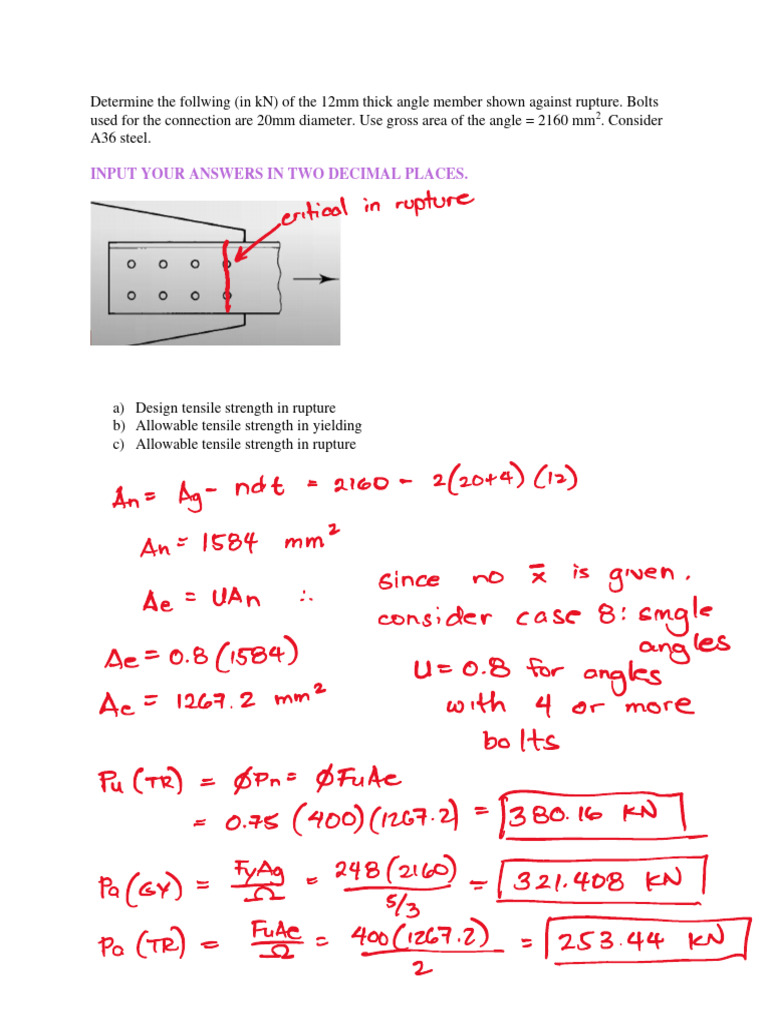 Determine the follwing (in kN) of the 12mm thick angle member shown against rupture. Bolts
used for the connection are 20mm diameter. Use gross area of the angle = 2160 mm². Consider
A36 steel.
INPUT YOUR ANSWERS IN TWO DECIMAL PLACES.
critical in rupture
a) Design tensile strength in rupture
b) Allowable tensile strength in yielding
c) Allowable tensile strength in rupture
An = Ag - ndt = 2160 - 2(20+4)(12)
An = 1584 mm²
Ae = UAn ∴
since no x̄ is given.
consider case 8: single
angles
U = 0.8 for angles
with 4 or more
bolts
Ae = 0.8(1584)
Ae = 1267.2 mm²
Pu (TR) = ØPn = ØFuAe
= 0.75 (400)(1267.2) = 380.16 KN
Pa (GY) = FyAg/Ω = 248(2160)/5/3 = 321.408 KN
Pa (TR) = FuAe/Ω = 400(1267.2)/2 = 253.44 KN